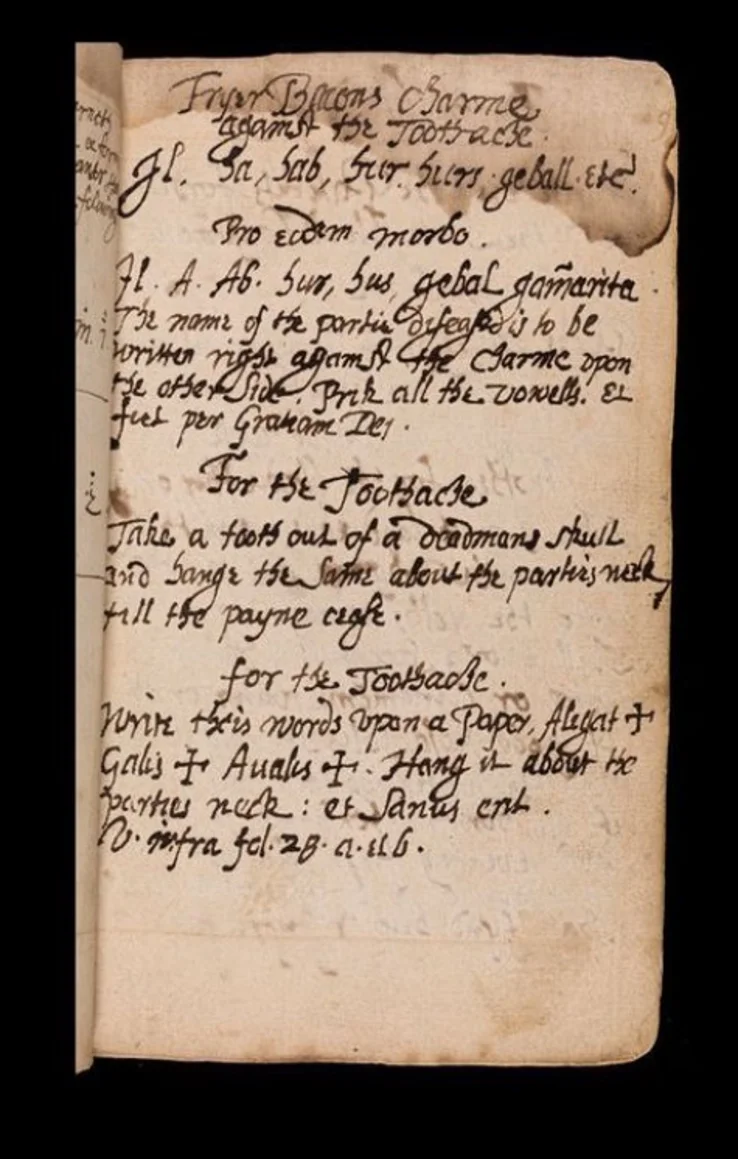 Fryer Bacons Charme
against the Toothache.
Jl. ha, hab, hur. hurs. geball. etc.
Pro eodem morbo.
Jl. A. Ab. hur, hus, gebal gam̃arita.
The name of the partie diseased is to be
written right against the Charme vpon
the other side. Prik all the vowells. Et
fiet per Gratiam Dei.
For the Toothache
Take a tooth out of a deadmans skull
and hange the same about the parties neck
till the payne cease.
for the Toothache.
Write theis words vpon a Paper, Alegat ✝
Galis ✝ Aualis ✝. Hang it about the
parties neck: et Sanus erit.
V. infra fol. 28. a. et b.